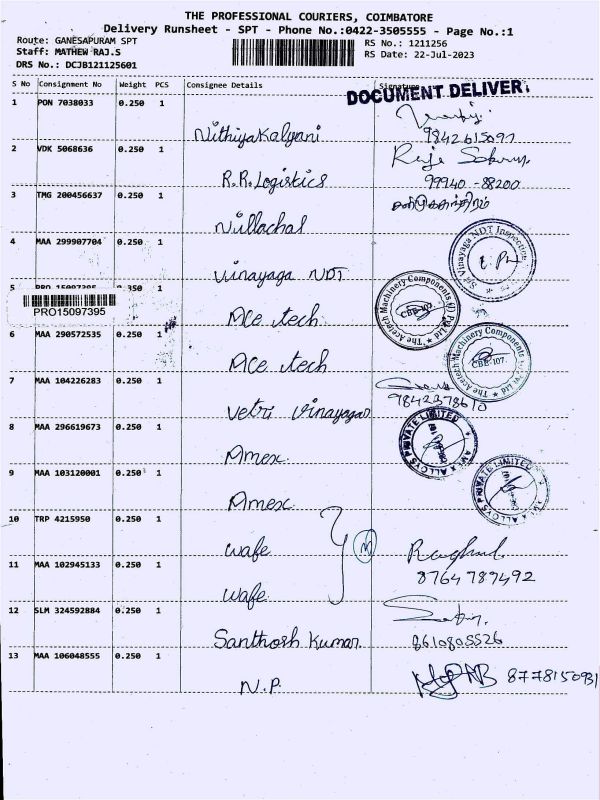 THE PROFESSIONAL COURIERS, COIMBATORE
Delivery Runsheet - SPT - Phone No.:0422-3505555 - Page No.:1
Route: GANESAPURAM SPT
Staff: MATHEW RAJ.S
DRS No.: DCJB121125601
RS No.: 1211256
RS Date: 22-Jul-2023
S No Consignment No Weight PCS Consignee Details Signature
DOCUMENT DELIVERY
1 PON 7038033 0.250 1 Nithiyakalyani 9842615097
2 VDK 5068636 0.250 1 R.R.Logistics 99940 -88200
3 TMG 200456637 0.250 1 Nillachal
4 MAA 299907704 0.250 1 Vinayaga NDT
Sri Vinayaga NDT Inspection
5 PRO 15097395 0.250 1 Ace tech
PRO15097395
The Acetech Machinery Components (I) Pvt Ltd
CBE-107
6 MAA 290572535 0.250 1 Ace tech
The Acetech Machinery Components (I) Pvt Ltd
CBE-107.
7 MAA 104226283 0.250 1 Vetri Vinayagar 9842378610
8 MAA 296619673 0.250 1 Amex.
AMEX ALLOYS PRIVATE LIMITED
9 MAA 103120001 0.250 1 Amex
AMEX ALLOYS PRIVATE LIMITED
10 TRP 4215950 0.250 1 wafe Raghul.
11 MAA 102945133 0.250 1 wafe. 8764789492
12 SLM 324592884 0.250 1 Santhosh Kumar. 8610805526
13 MAA 106048555 0.250 1 N.P. 8778150931